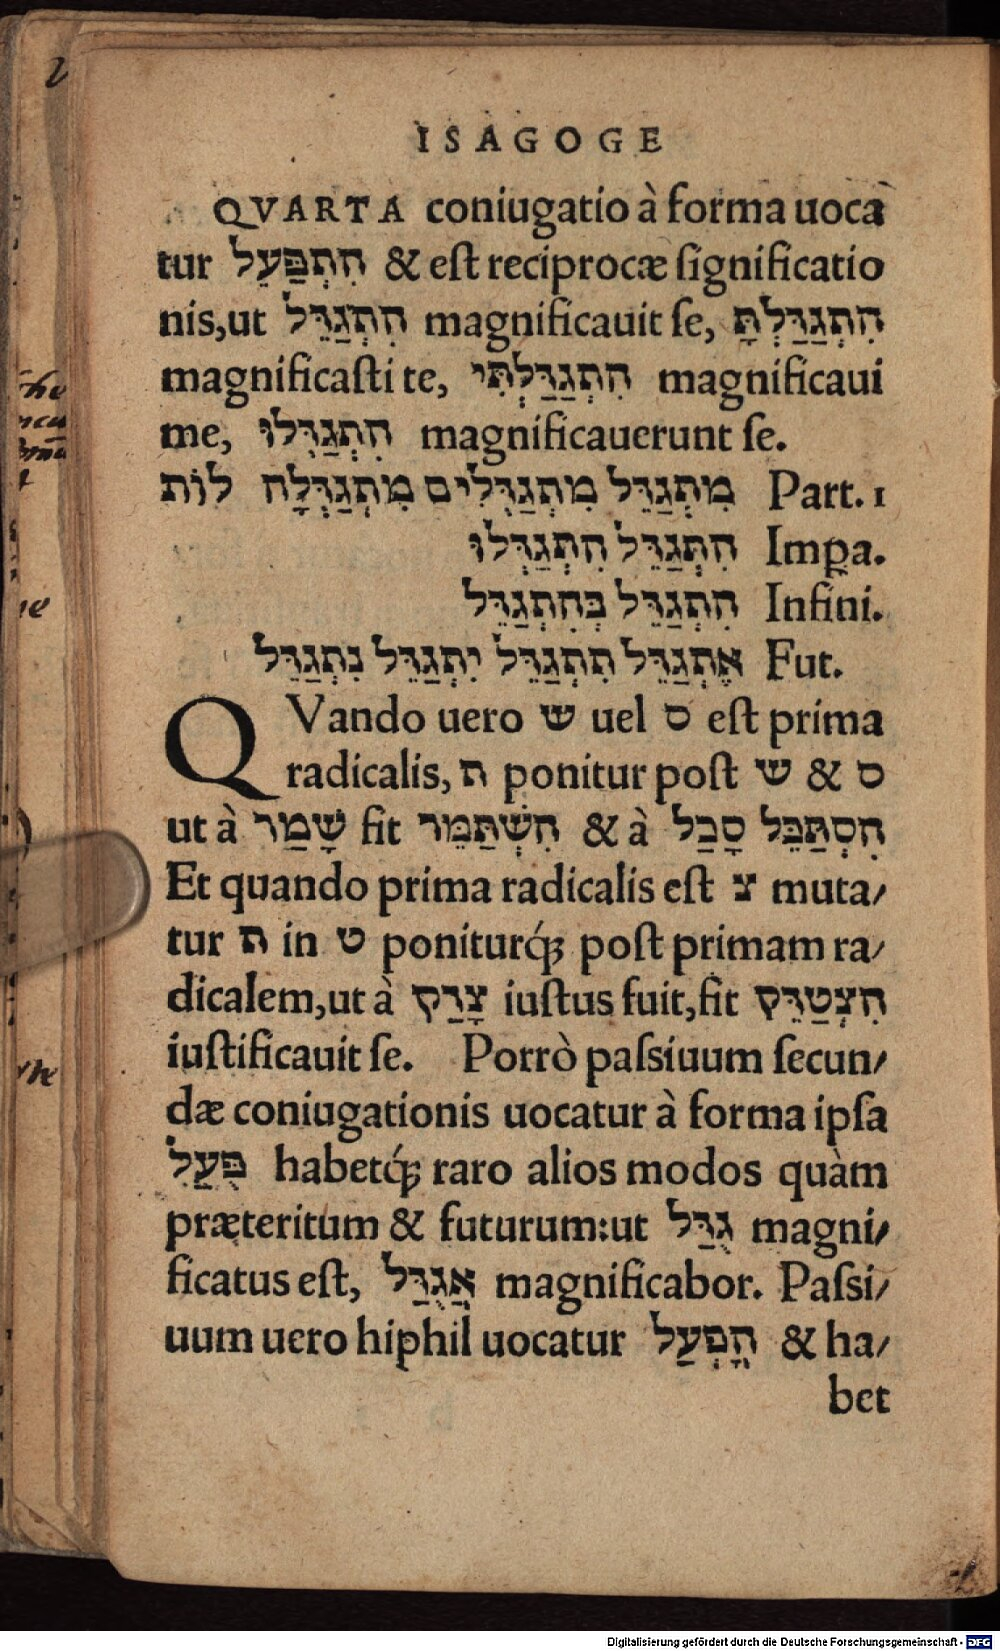 ISAGOGE
QVARTA coniugatio à forma uoca
tur הִתְפַּעֵל & est reciprocæ significatio
nis,ut הִתְגַּדֵּל magnificauit se, הִתְגַּדַּלְתָּ
magnificasti te, הִתְגַּדַּלְתִּי magnificaui
me, הִתְגַּדְּלוּ magnificauerunt se.
מִתְגַּדֵּל מִתְגַּדְּלִים מִתְגַּדְּלָה לוֹת Part. 1
הִתְגַּדֵּל הִתְגַּדְּלוּ Impa.
הִתְגַּדֵּל בְּהִתְגַּדֵּל Infini.
אֶתְגַּדֵּל תִתְגַּדֵּל יִתְגַּדֵּל נִתְגַּדֵּל Fut.
QVando uero ש uel ס est prima
radicalis, ת ponitur post ש & ס
ut à שָׁמַר fit הִשְׁתַּמֵּר & à סָבַל הִסְתַּבֵּל
Et quando prima radicalis est צ muta/
tur ת in ט poniturq́ꝫ post primam ra/
dicalem,ut à צָדַק iustus fuit,fit הִצְטַדֵּק
iustificauit se. Porrò passiuum secun/
dæ coniugationis uocatur à forma ipsa
פֻּעַל habetq́ꝫ raro alios modos quàm
præteritum & futurum:ut גֻּדַּל magni/
ficatus est, אֲגֻדַּל magnificabor. Passi/
uum uero hiphil uocatur הֳפְעַל & ha/
bet
Digitalisierung gefördert durch die Deutsche Forschungsgemeinschaft - DFG